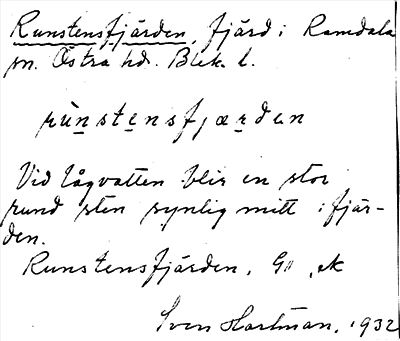 Runstensfjärden, fjärd i Ramdala
sn. Östra hd. Blek. l.
rùnstensfjærden
Vid lågvatten blir en stor
rund sten synlig mitt i fjär-
den.
Runstensfjärden, G ek
Sven Hartman, 1932